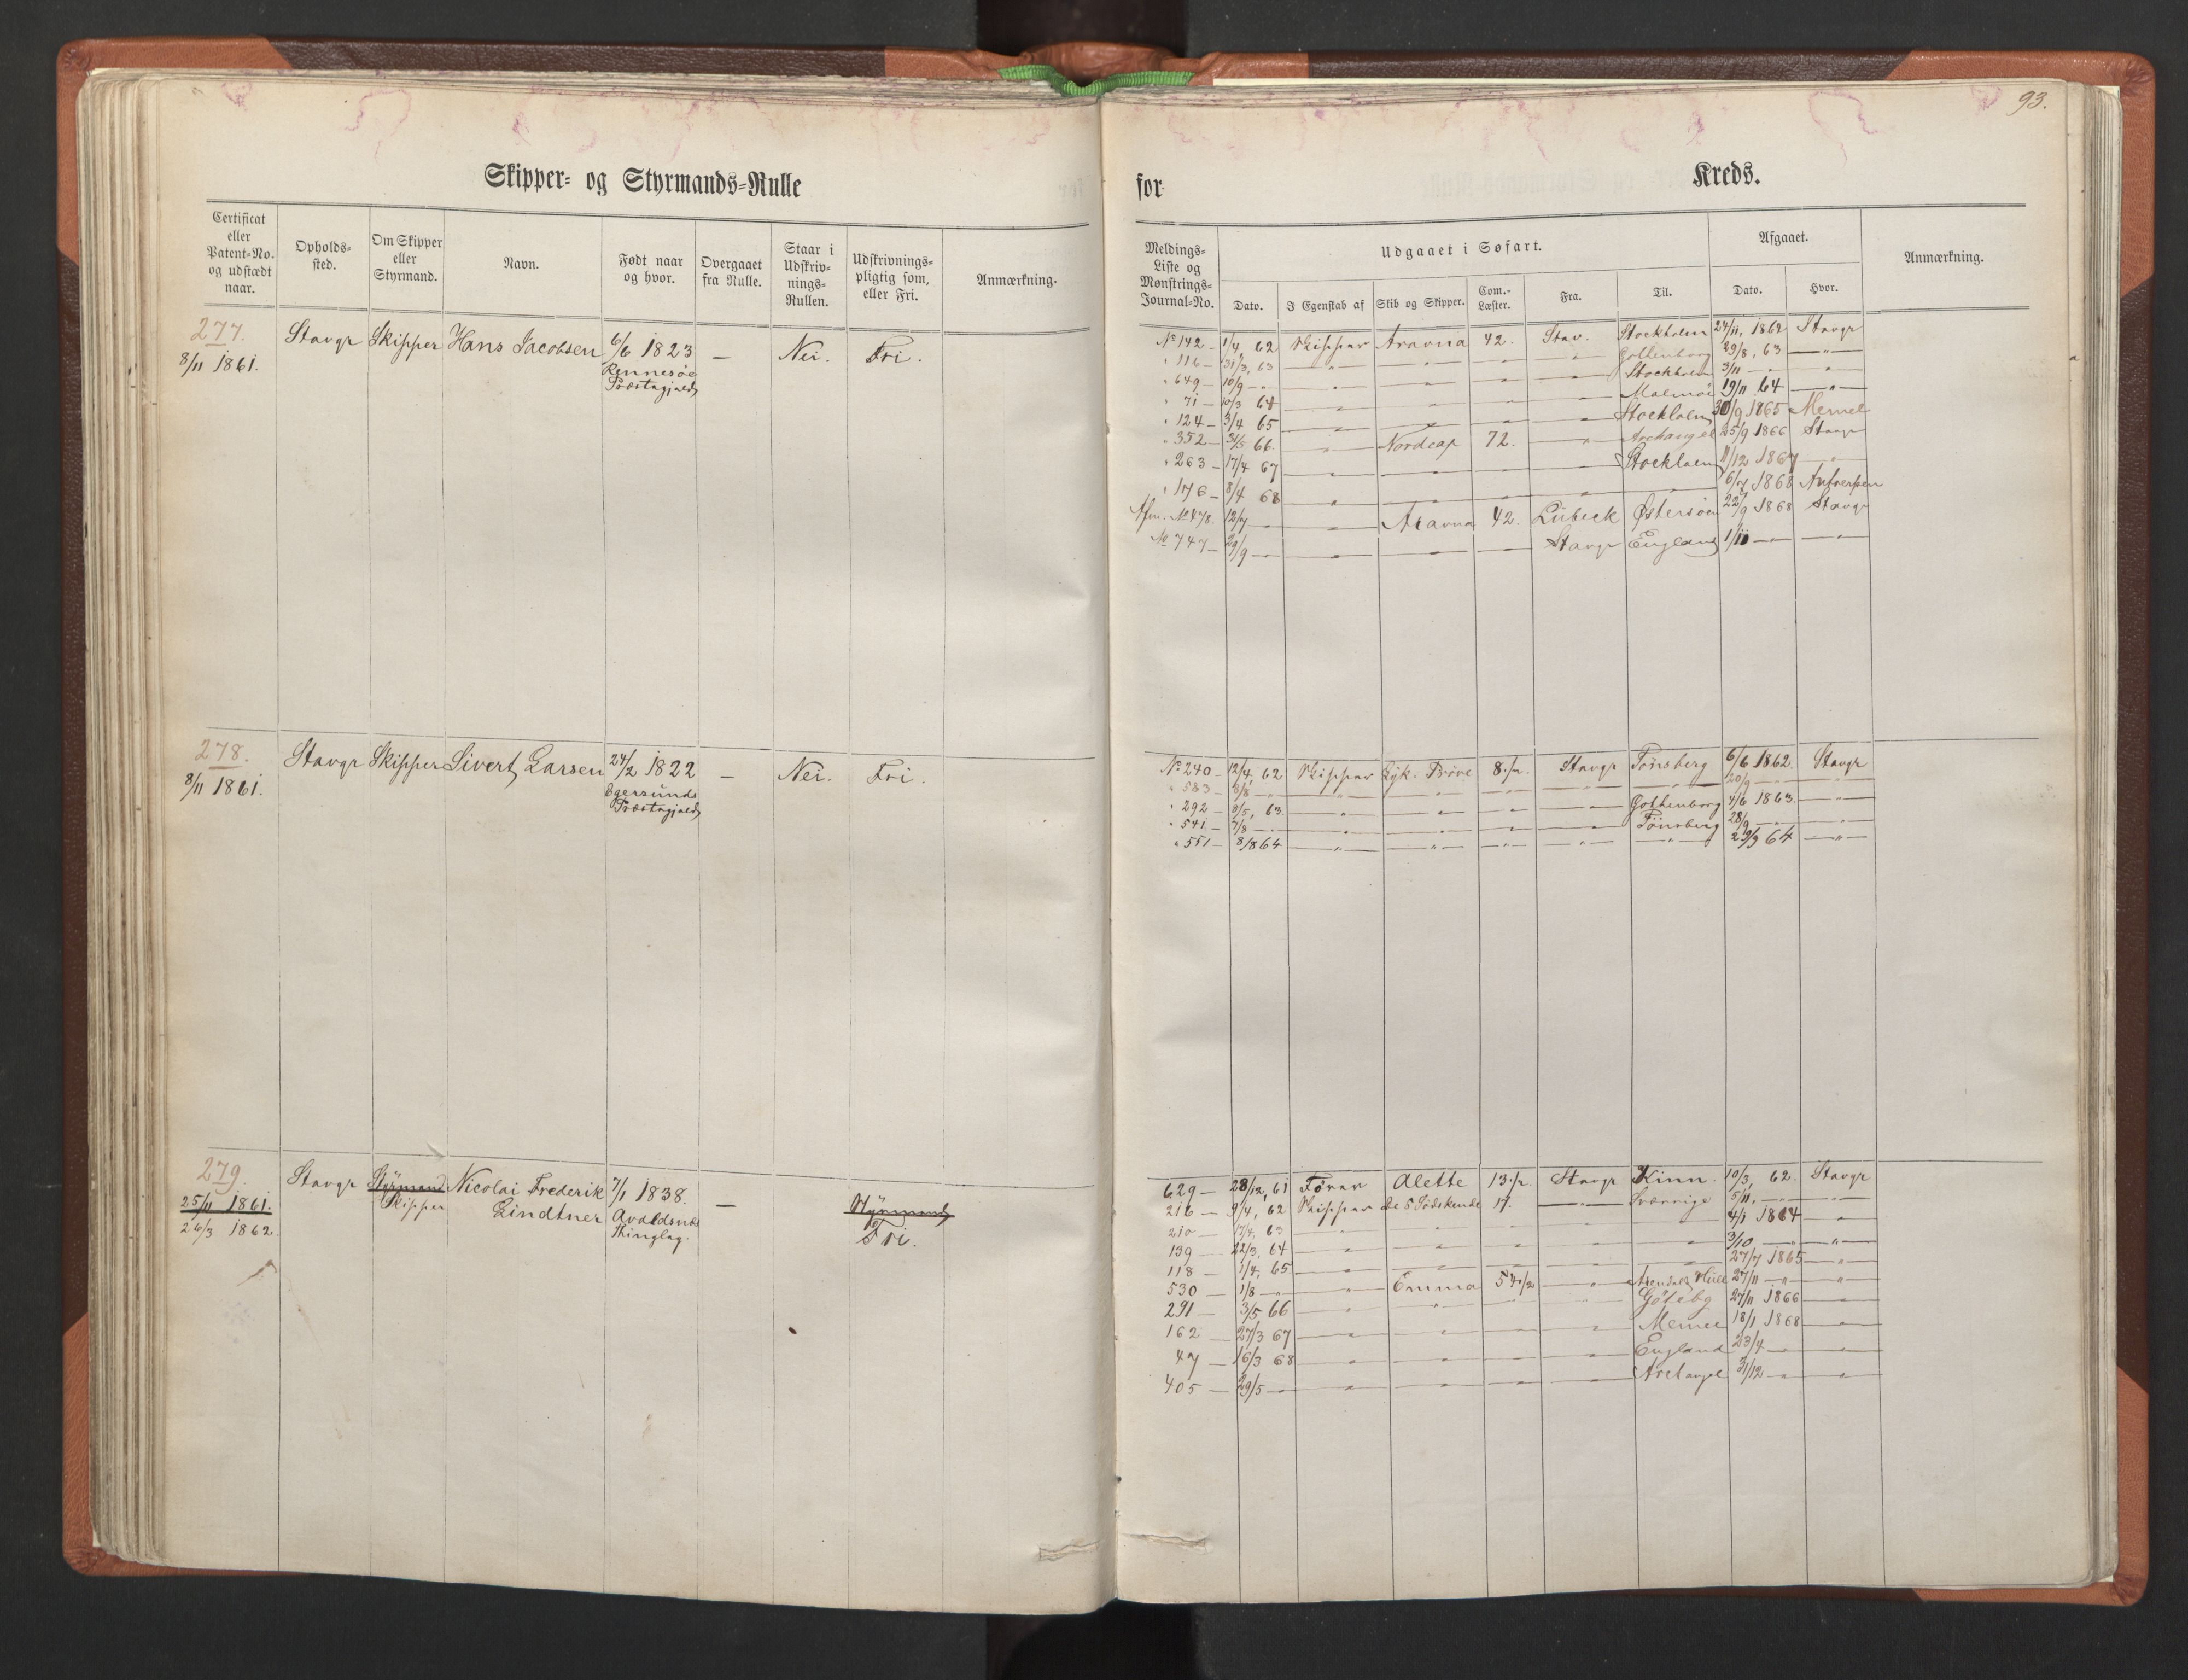 93.
Skipper- og Styrmands-Rulle for Kreds.
Certificat eller Patent-No. og udstædt naar. Opholds-sted. Om Skipper eller Styrmand. Navn. Født naar og hvor. Overgaaet fra Rulle. Staar i Udskriv-nings-Rullen. Udskrivnings-pligtig som, eller Fri. Anmærkning.
Meldings-Liste og Mønstrings-Journal-No. Udgaaet i Søfart. Afgaaet. Anmærkning.
Dato. I Egenskab af Skib og Skipper. Com.-Læster. Fra. Til. Dato. Hvor.
277. Stavgr Skipper Hans Jacobsen 6/6 1823 — Nei. Fri.
8/11 1861. Rennesøe
Præstegjeld
No 142 — 1/4 62 Skipper Aravna 42. Stav. Stockholm 24/11, 1862 Stavgr
" 116 — 31/3, 63 — " — — " — — " — Gottenborg 29/8, 63 — " —
" 649 — 10/9 — " — " — — " — — " — Stockholm 3/11 — " — " —
" 71 — 10/3 64 — " — — " — — " — Malmøe 19/11 64 — " —
" 124 — 3/4 65 — " — — " — — " — Stockholm 30/9 1865 Memel
" 352 — 31/5 66. — " — Nordcap 72. — " — Archangel 25/9 1866 Stavgr
" 263 — 17/4 67 — " — — " — — " — Stockholm 11/12 1867 — " —
" 176 — 8/4 68 — " — — " — — " — — " — 6/7 1868 Antverpen
Afm. No 478. 12/7 — " — — " — Aravna 42. Lübeck Østersøen 22/9 1868 Stavgr
No 747 — 29/9 — " — — " — — " — Stavgr England 1/11 — " — — " —
278. Stavgr Skipper Sivert Larsen 24/2 1822 — Nei. Fri.
8/11 1861. Egersunds
Præstegjeld
No 240 — 12/4, 62 Skipper Prøve 8 1/2. Stavgr Tønsberg 6/6 1862. Stavgr
" 583 — 8/8 — " — " — — " — — " — — " — 20/9 — " — " —
" 292 — 8/5, 63 — " — — " — — " — Gothenborg 4/6 1863. — " —
" 541 — 7/8 — " — " — — " — — " — Tönsberg 28/9 — " — " —
" 551 — 8/8 64 — " — — " — — " — — " — 29/9 64 — " —
279. Stavgr Styrmand Nicolai Frederik 7/1 1838. — Styrmand
25/11 1861. Skipper Lindtner Avaldsnæs Fri.
26/3 1862. Thinglag.
629 — 28/12, 61 Fører Alette 13 1/2. Stavgr Kinn. 10/3, 62. Stavgr
216 — 9/4, 62 Skipper de 5 Södskende 17. — " — Sverrige 5/11, — " — " —
210 — 17/4, 63 — " — — " — — " — — " — 4/1 1864 — " —
139 — 22/3, 64 — " — — " — — " — — " — 3/10 — " — " —
118 — 1/4, 65 — " — — " — — " — — " — 27/7 1865 — " —
530 — 1/8 — " — " — Emma 54 1/2 — " — Arendal 27/11 — " — " —
291 — 3/5 66 — " — — " — — " — Götebg 27/11 1866 — " —
162 — 27/3 67 — " — — " — — " — Memel 18/1 1868 — " —
47 — 16/3 68 — " — — " — — " — England 23/4 — " — " —
405 — 29/5 — " — " — — " — — " — Archangel 31/12 — " — " —